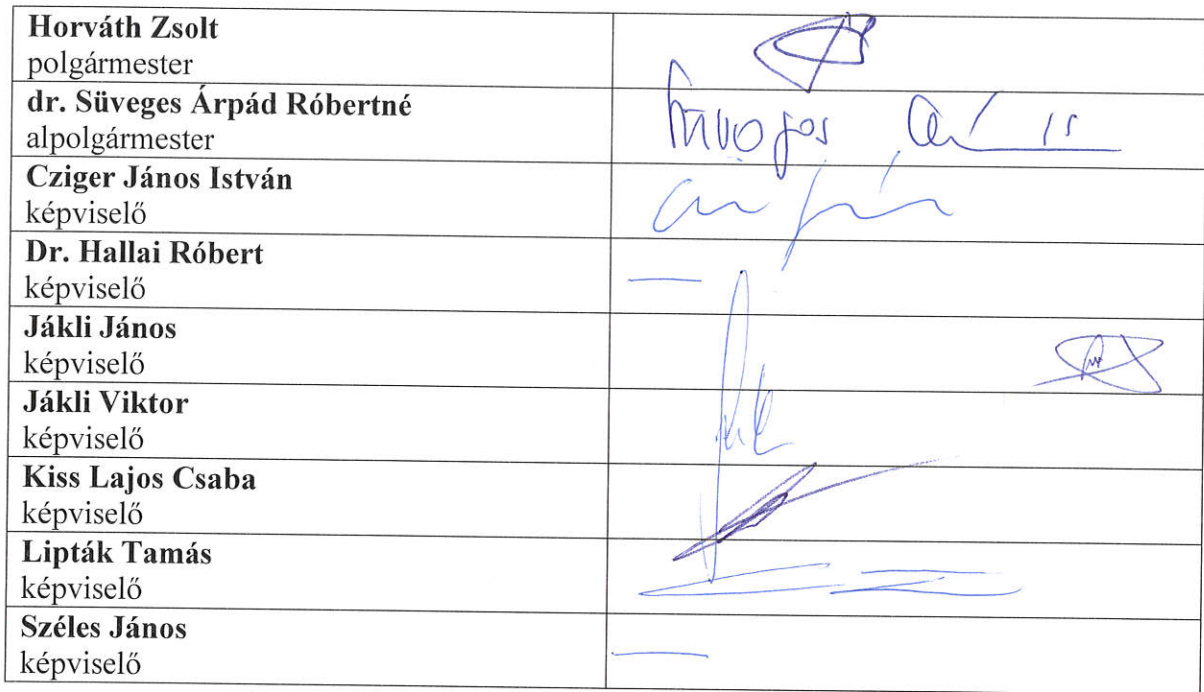 Horváth Zsolt
polgármester
dr. Süveges Árpád Róbertné
alpolgármester
Cziger János István
képviselő
Dr. Hallai Róbert
képviselő
—
Jákli János
képviselő
Jákli Viktor
képviselő
Kiss Lajos Csaba
képviselő
Lipták Tamás
képviselő
Széles János
képviselő
—